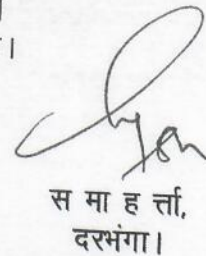 ।
स मा ह र्त्ता,
दरभंगा।